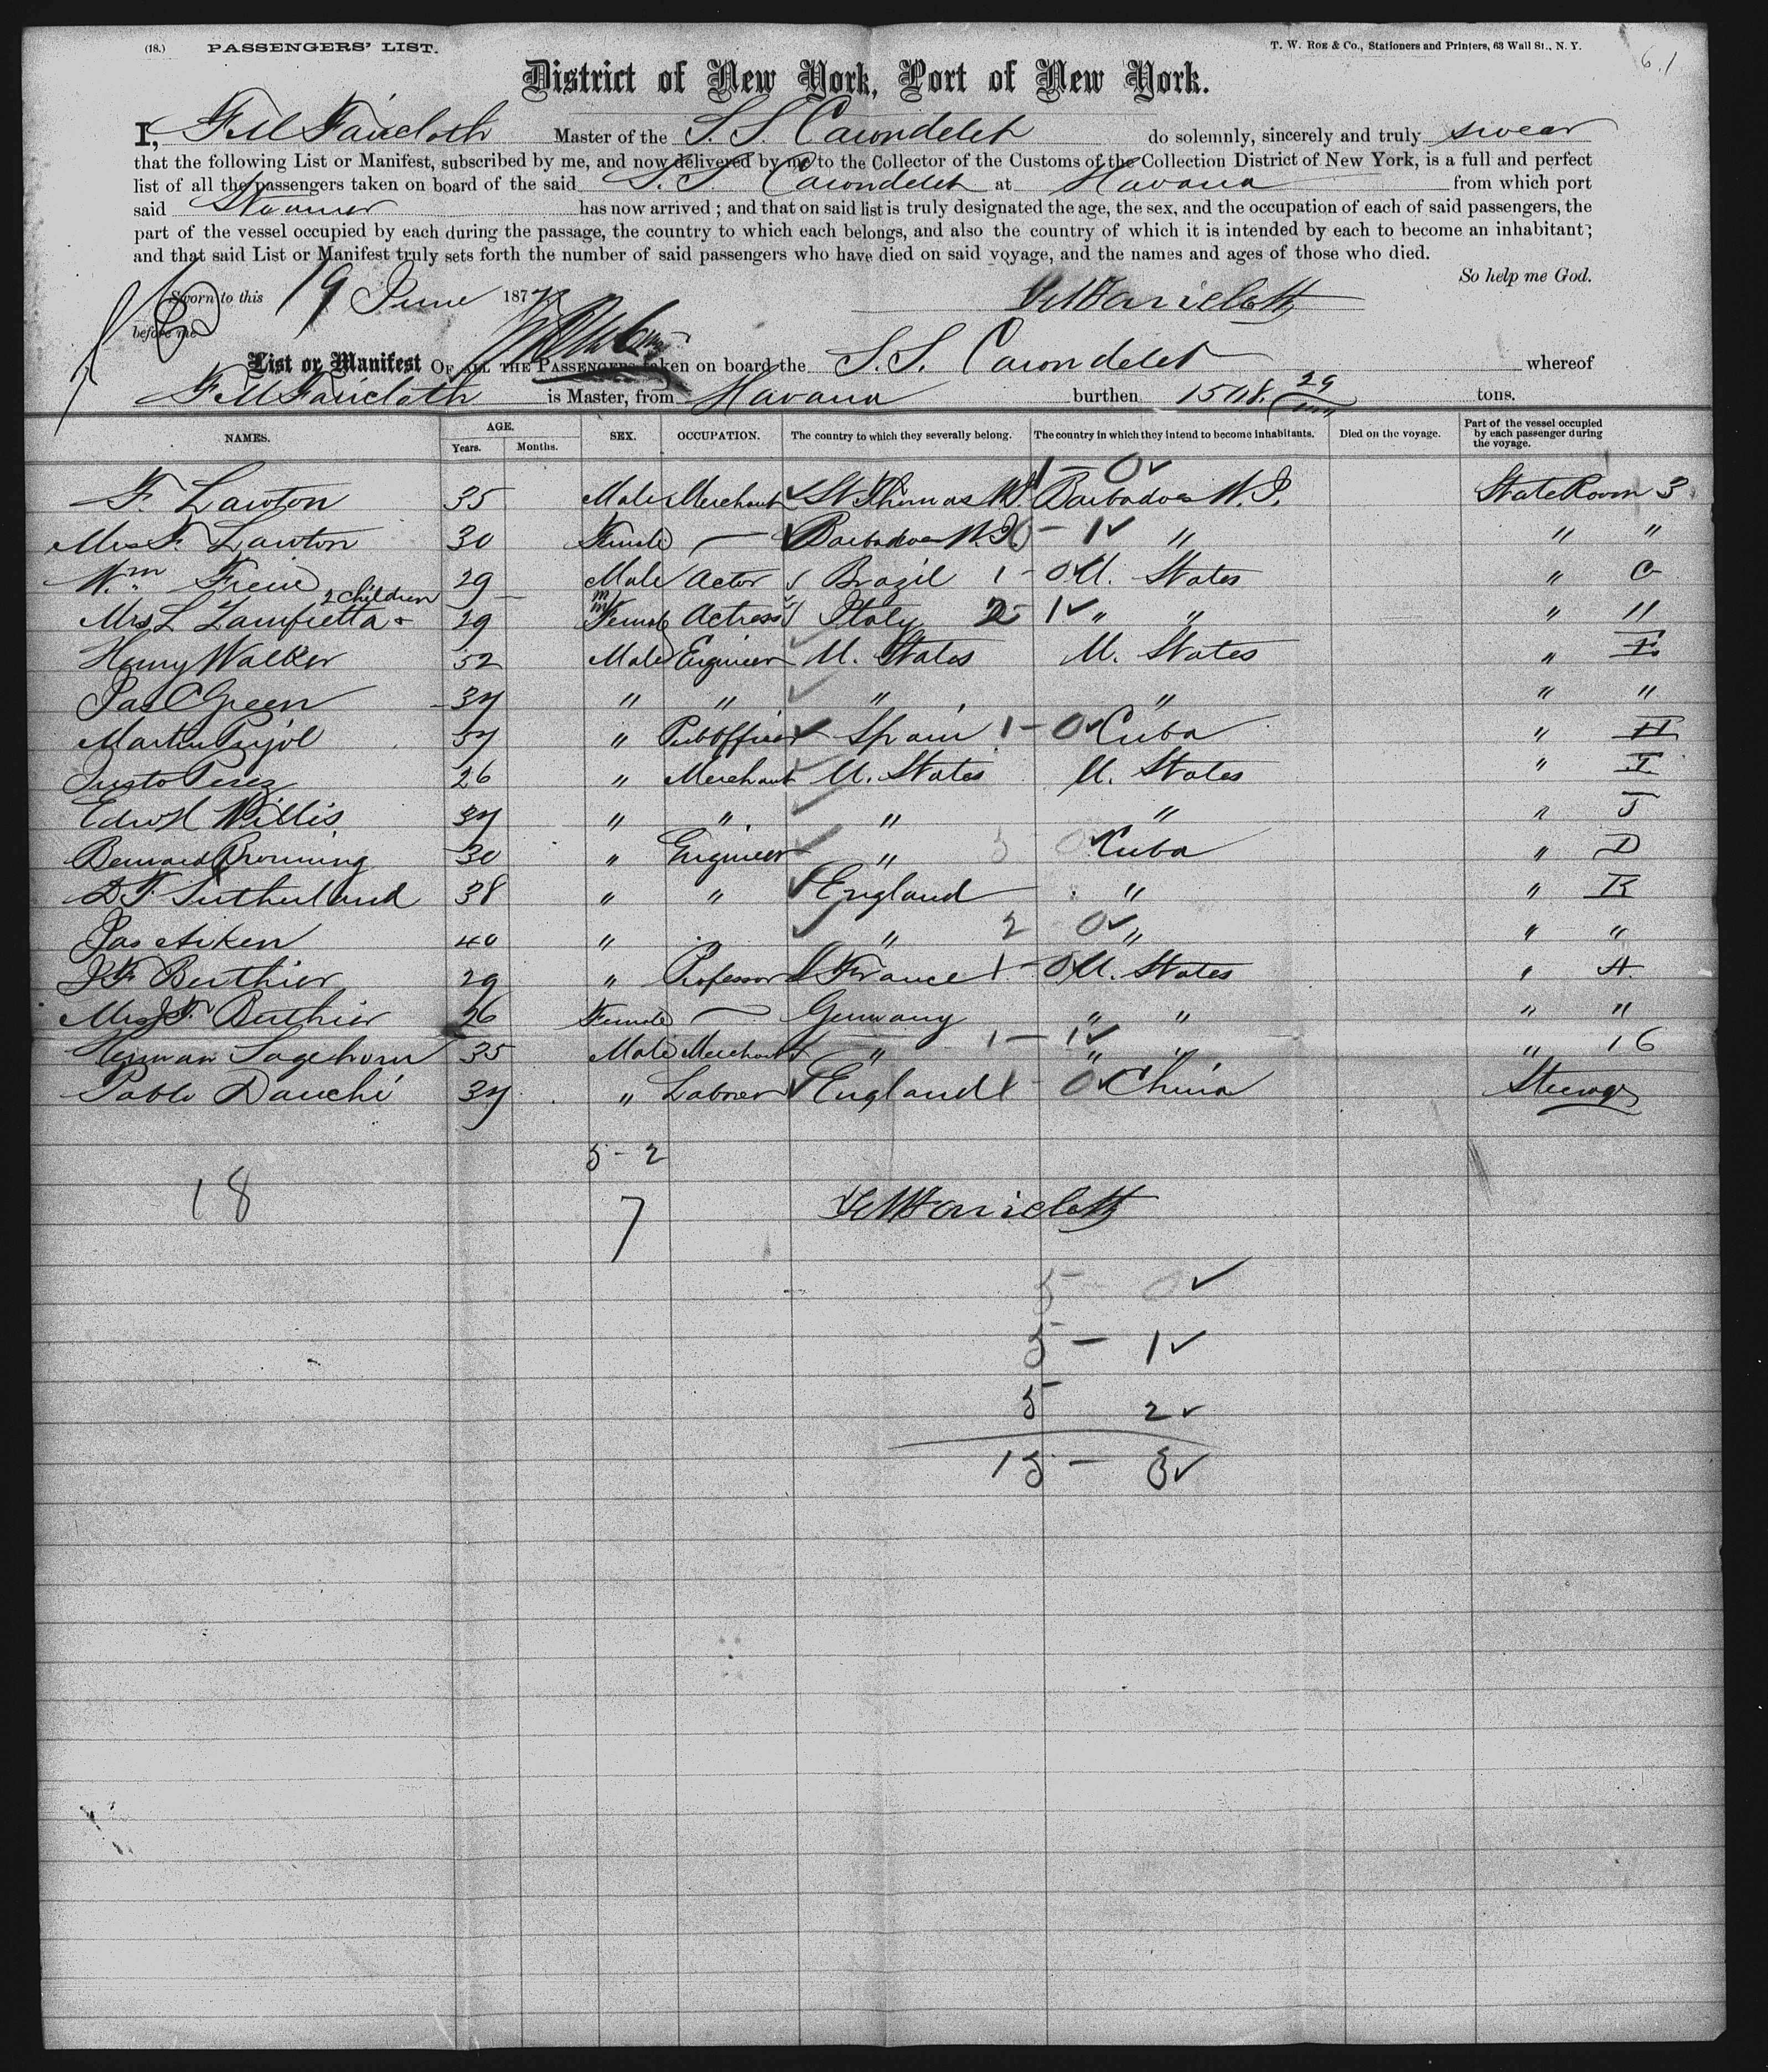 (18.) PASSENGERS' LIST. T. W. ROE & Co., Stationers and Printers, 63 Wall St., N. Y. 61
District of New York, Port of New York.
I, F M Faircloth Master of the S. S. Carondelet do solemnly, sincerely and truly swear
that the following List or Manifest, subscribed by me, and now delivered by me to the Collector of the Customs of the Collection District of New York, is a full and perfect
list of all the passengers taken on board of the said S. S. Carondelet at Havana from which port
said Steamer has now arrived ; and that on said list is truly designated the age, the sex, and the occupation of each of said passengers, the
part of the vessel occupied by each during the passage, the country to which each belongs, and also the country of which it is intended by each to become an inhabitant ;
and that said List or Manifest truly sets forth the number of said passengers who have died on said voyage, and the names and ages of those who died.
So help me God.
Sworn to this 19 June 187 F M Faircloth
before me
List or Manifest OF ALL THE PASSENGERS taken on board the S. S. Carondelet whereof
F M Faircloth is Master, from Havana burthen 1508. 29 tons.
NAMES. AGE. Years. Months. SEX. OCCUPATION. The country to which they severally belong. The country in which they intend to become inhabitants. Died on the voyage. Part of the vessel occupied by each passenger during the voyage.
1 - 0 ✓
F. Lawton 35 Male Merchant ✓ St Thomas W.I. Barbadoes W.I. State Room 3
Mrs F. Lawton 30 Female — ✓ Barbadoes W.I. 0 - 1 ✓ " " "
Wm Freie 29 Male Actor Brazil 1 - 0 ✓ U. States " C
2 children
Mrs L Zamfretta & 29 m m Female Actress Italy 2 - 1 ✓ " " " "
Henry Walker 52 Male Engineer ✓ U. States U. States " F
Jas C Green 37 " " ✓ " " " "
Martin Pujol 57 " Pub Officer ✓ Spain 1 - 0 ✓ Cuba " H
Justo Perez 26 " Merchant ✓ U. States U. States " I
Edw H Willis 37 " " ✓ " " " J
Bernard Browning 30 " Engineer ✓ " 5 0 ✓ Cuba " D
D F. Sutherland 38 " " ✓ England " " K
Jas Aiken 40 " ✓ " 2 0 ✓ " " "
J F Berthier 29 " Professor France 1 - 0 ✓ U. States " A
Mrs J F. Berthier 26 Female — Germany " " " "
Herman Sagehorn 35 Male Merchant " 1 - 1 ✓ " " " 16
Pablo Dauchi 37 " Laborer ✓ England 1 - 0 ✓ China Steerage
5 - 2
18 7 F M Faircloth
5 0 ✓
5 - 1 ✓
5 2 ✓
15 - 3 ✓